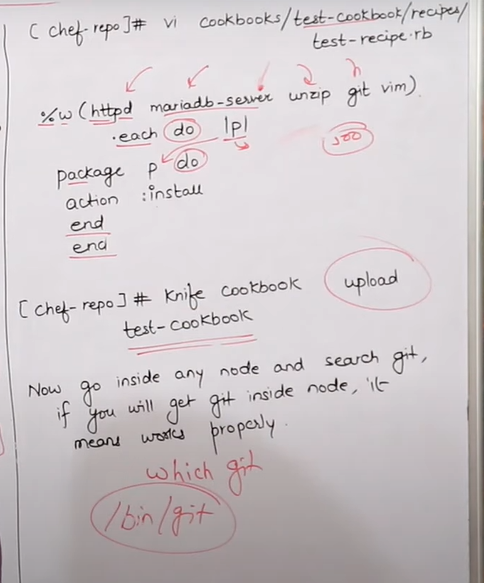 [chef-repo]# vi cookbooks/test-cookbook/recipes/
test-recipe.rb
%w (httpd mariadb-server unzip git vim)
.each do |p|
100
package p do
action :install
end
end
[chef-repo]# Knife cookbook upload
test-cookbook
Now go inside any node and search git,
if you will get git inside node, it
means works properly.
which git
/bin/git